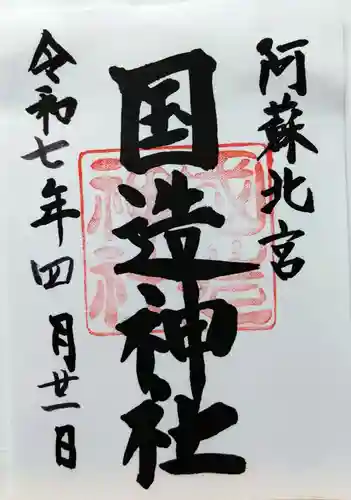 阿蘇北宮
国造神社
令和七年四月廿一日